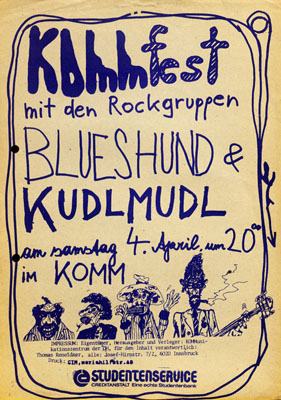 Kommfest
mit den Rockgruppen
BLUESHUND &
KUDLMUDL
am samstag 4. April, um 20⁰⁰
im KOMM
IMPRESSUM: Eigentümer, Herausgeber und Verleger: KOMmuni-
kationszentrum der ÖH, für den Inhalt verantwortlich:
Thomas Roseldner, alle: Josef-Hirnstr. 7/2, 6020 Innsbruck
Druck:
STUDENTENSERVICE
CREDITANSTALT Eine echte Studentenbank